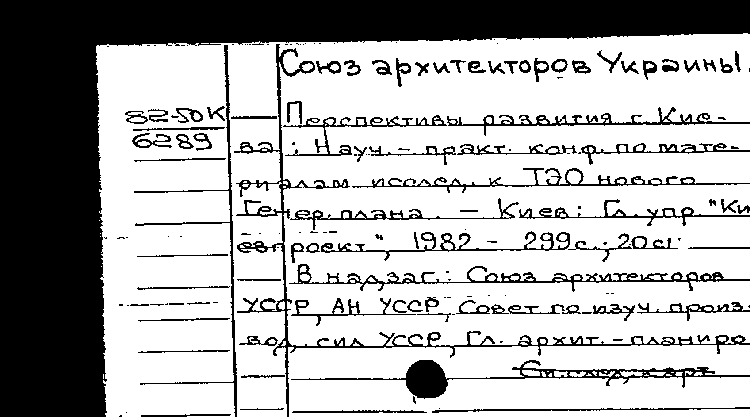 Союз архитекторов Украины.
82-50К
6289
Перспективы развития г. Кие-
ва : Науч.- практ. конф. по мате-
риалам исслед. к ТЭО нового
Генер. плана. - Киев: Гл. упр. "Ки
евпроект", 1982 - 299с.; 20см.
В надзаг.: Союз архитекторов
УССР, АН УССР, Совет по изуч. произ-
вод. сил УССР, Гл. архит.-планиро
См. след. карт